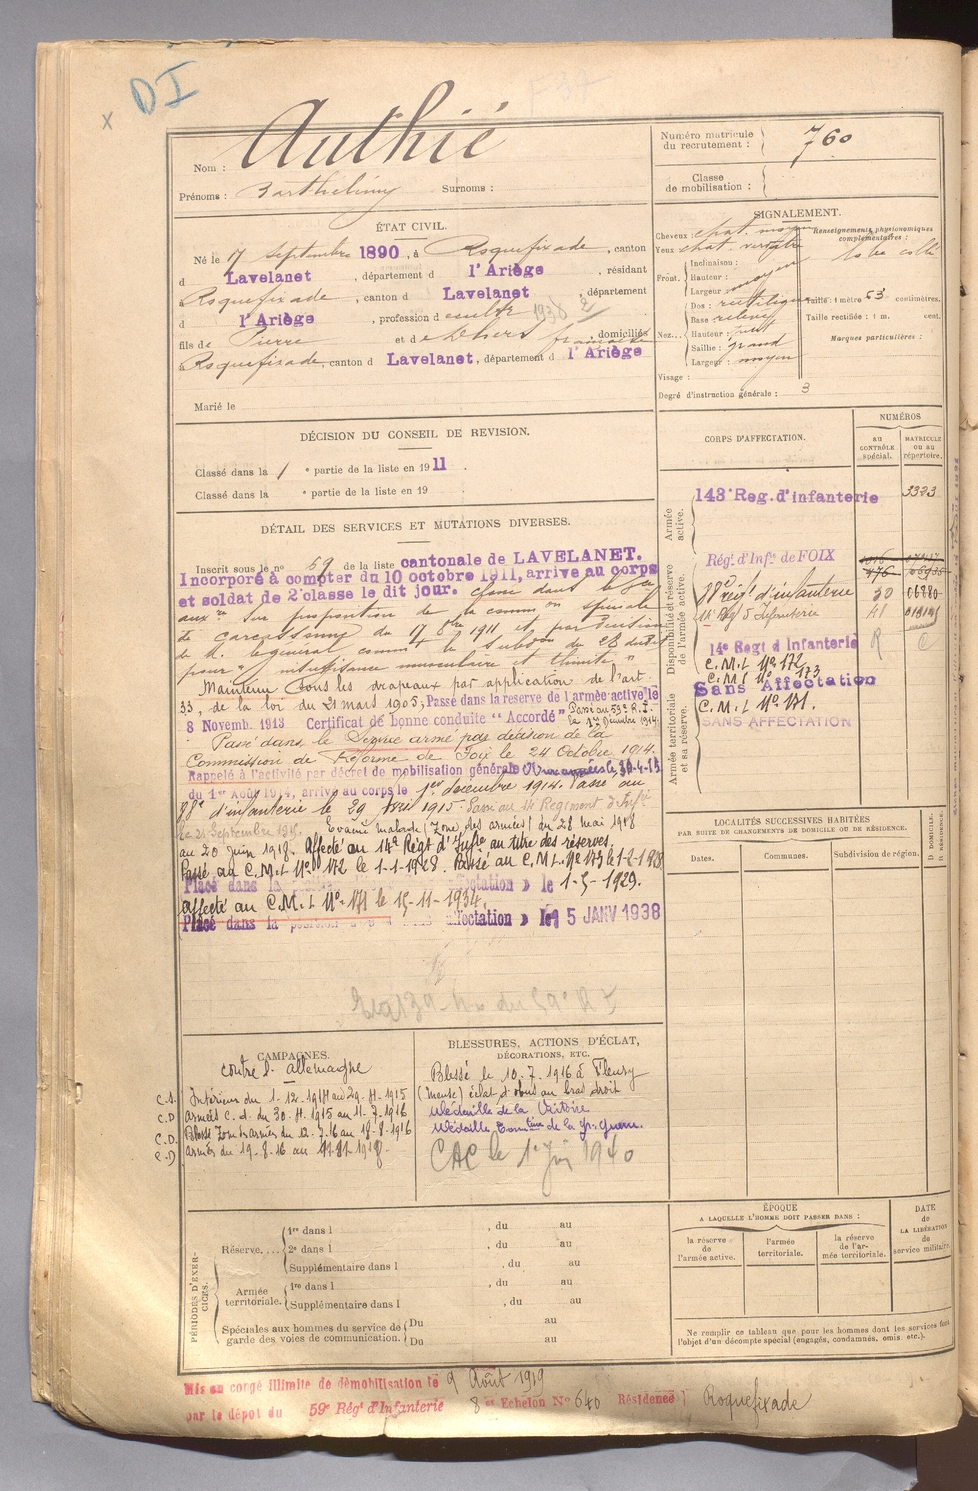 DI
x
Nom : Authié
Prénoms : Barthélémy Surnoms :
Numéro matricule du recrutement : 760
Classe de mobilisation :
ÉTAT CIVIL.
Né le 17 septembre 1890, à Roquefixade, canton
d Lavelanet, département d l'Ariège, résidant
Roquefixade, canton d Lavelanet, département
d l'Ariège, profession d cultr 1938 2
fils de Pierre et de française domiciliés
Roquefixade, canton d Lavelanet, département d l'Ariège
Marié le
SIGNALEMENT.
Cheveux : chat. moyen
Yeux chat. verdâtre
Front. Inclinaison :
Hauteur :
Largeur : moyen
Nez... Dos : rectiligne
Base relevée
Hauteur :
Saillie : grand
Largeur : moyen
Visage :
Degré d'instruction générale : 3
Renseignements physionomiques complémentaires :
lobe collé
Taille : 1 mètre 53 centimètres.
Taille rectifiée : 1 m. cent.
Marques particulières :
DÉCISION DU CONSEIL DE REVISION.
Classé dans la 1 e partie de la liste en 1911
Classé dans la e partie de la liste en 19
DÉTAIL DES SERVICES ET MUTATIONS DIVERSES.
Inscrit sous le no 59 de la liste cantonale de LAVELANET.
Incorporé à compter du 10 octobre 1911, arrive au corps
et soldat de 2e classe le dit jour. classé dans le Sce
auxre sur proposition de la common spéciale
de Carcassonne du 17 8bre 1911 et par décision
de M. le général commt le subdon du 28 dudit
pour "insuffisance musculaire et thinité"
Maintenu sous les drapeaux par application de l'art.
33, de la loi du 21 mars 1905; Passé dans la réserve de l'armée active le
8 Novemb. 1913 Certificat de bonne conduite "Accordé" Passé au 59e R.I.
le 1er Décembre 1914
Passé dans le Service armé par décision de la
Commission de Réforme de Foix le 24 Octobre 1914.
Rappelé à l'activité par décret de mobilisation générale Aux armées le 30-4-15
du 1er Août 1914, arrivé au corps le 1er décembre 1914. Passé au
88e d'infanterie le 29 Avril 1915. Passé au 14 Régiment d'Infie
le 21 Septembre 1916. Evacué malade (Zone des armées) du 28 mai 1918
au 20 juin 1918. Affecté au 14e Régt d'Inftie au titre des réserves.
Passé au C.M.I. No 172 le 1-1-1928. Passé au C.M.I. No 173 le 1-2-1928
Placé dans la affectation » le 1-5-1929.
affecté au C.M.I. No 171 le 15-11-1934.
Placé dans la position affectation » le 15 JANV 1938
CORPS D'AFFECTATION.
NUMÉROS
AU CONTRÔLE spécial.
MATRICULE OU AU répertoire.
Armée active.
143e Reg. d'infanterie 3323
Disponibilité et réserve de l'armée active.
Régt d'Infie de FOIX
88e régt d'infanterie 30 06980
14e Reg d'Infanterie 48
14e Regt d'Infanterie R C
C.M.I. No 172
C.M.I. No 173
Armée territoriale et sa réserve.
Sans Affectation
C.M.I. No 171.
SANS AFFECTATION
LOCALITÉS SUCCESSIVES HABITÉES
PAR SUITE DE CHANGEMENTS DE DOMICILE OU DE RÉSIDENCE.
Dates. Communes. Subdivision de région. D DOMICILE. R RÉSIDENCE.
CAMPAGNES.
contre l'Allemagne
C.S. Intérieur du 1-12-1914 au 29-4-1915
C.D. armées C. d. du 30-4-1915 au 11-7-1916
C.D. Blessé Zone des armées du 12-7-16 au 18-8-1916
C.D. armées du 19-8-16 au 11-11-1918
BLESSURES, ACTIONS D'ÉCLAT,
DÉCORATIONS, ETC.
Blessé le 10-7-1916 à Fleury
(Meuse) éclat d'obus au bras droit
Médaille de la Victoire
Médaille Commve de la Gr. guerre.
CAC le 1er Juin 1940
PÉRIODES D'EXERCICES.
Réserve.... 1re dans l , du au
2e dans l , du au
Supplémentaire dans l , du au
Armée territoriale. 1re dans l , du au
Supplémentaire dans l , du au
Spéciales aux hommes du service de garde des voies de communication. Du au
Du au
ÉPOQUE
A LAQUELLE L'HOMME DOIT PASSER DANS :
la réserve de l'armée active.
l'armée territoriale.
la réserve de l'armée territoriale.
DATE de LA LIBÉRATION du service militaire.
Ne remplir ce tableau que pour les hommes dont les services font
l'objet d'un décompte spécial (engagés, condamnés, omis, etc.).
Mis en congé illimité de démobilisation le 9 Août 1919
par le dépôt du 59e Régt d'Infanterie 8e Echelon No 640 Résidence Roquefixade